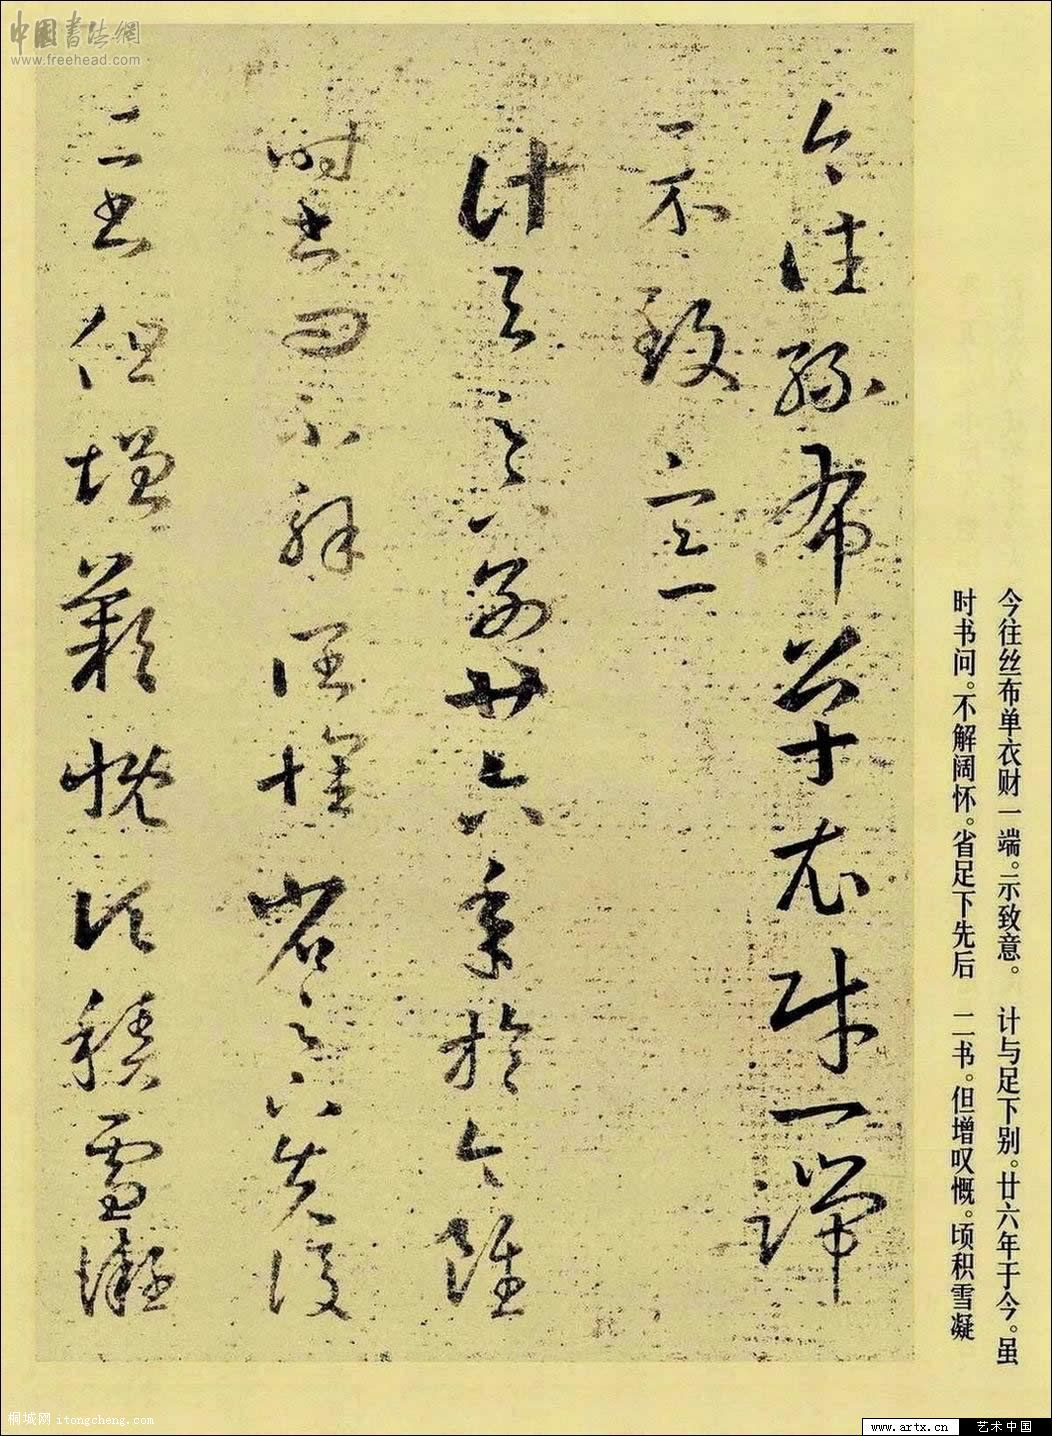 中国书法網
www.freehead.com
今往絲布單衣財一端
示致意
計與足下別廿六年於今雖
時書問不解闊懷省足下先後
二書但增歎慨頃積雪凝
今往丝布单衣财一端。示致意。 计与足下别。廿六年于今。虽
时书问。不解阔怀。省足下先后 二书。但增叹慨。顷积雪凝
桐城网 itongcheng.com
www.artx.cn 艺术中国